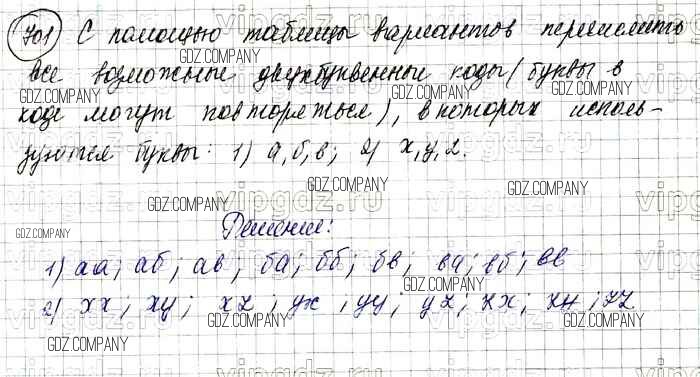 701 С помощью таблицы вариантов перечислить
все возможные двухбуквенные коды (буквы в
коде могут повторяться), в которых исполь-
зуются буквы: 1) а, б, в; 2) x, y, z.
Решение:
1) аа; аб; ав; ба; бб; бв; ва; вб; вв
2) xx; xy; xz; yx; yy; yz; zx; zy; zz
GDZ.COMPANY
vipgdz.ru